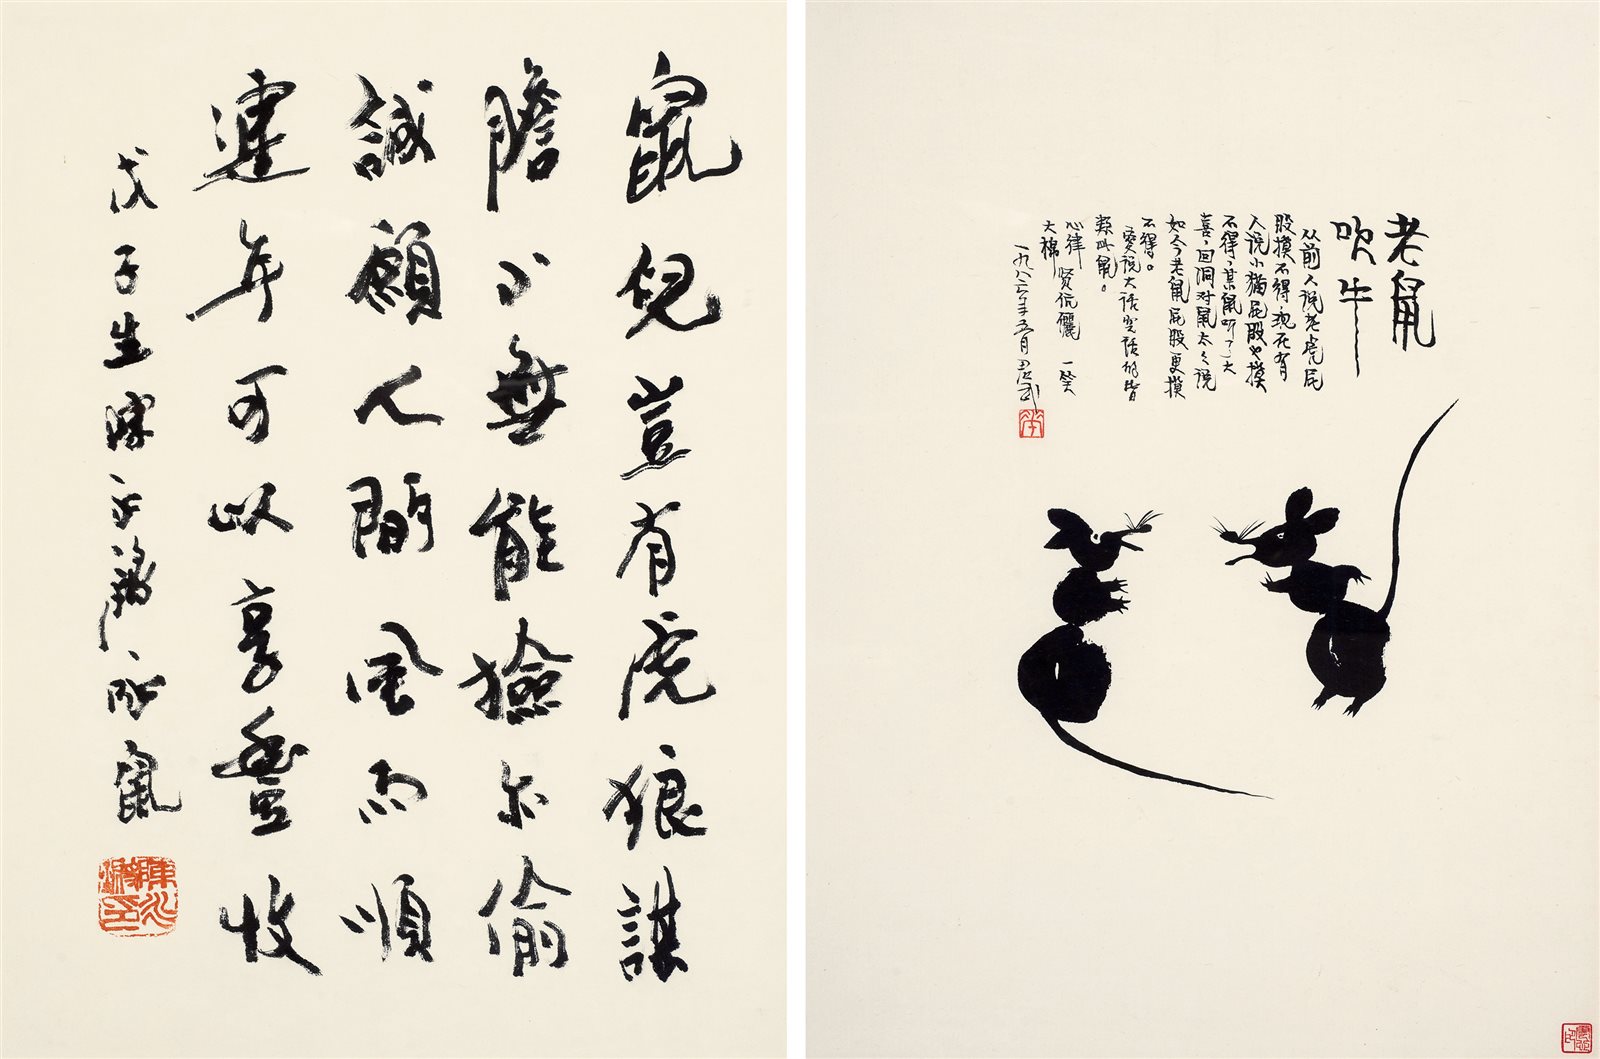 鼠兒豈有虎狼謀
膽小無能撿尔偷
誠願人間風雨順
連年可以享豐收
戊子生陳永鏘詠鼠
陳永鏘印
老鼠
吹牛
从前人说老虎屁
股摸不得现在有
人说小猫屁股也摸
不得，某鼠听了大
喜，回洞对鼠太太说
如今老鼠屁股更摸
不得。
爱说大话空话的皆
类此鼠。
心律 贤伉儷 一笑
大棉
一九八六年五月君武